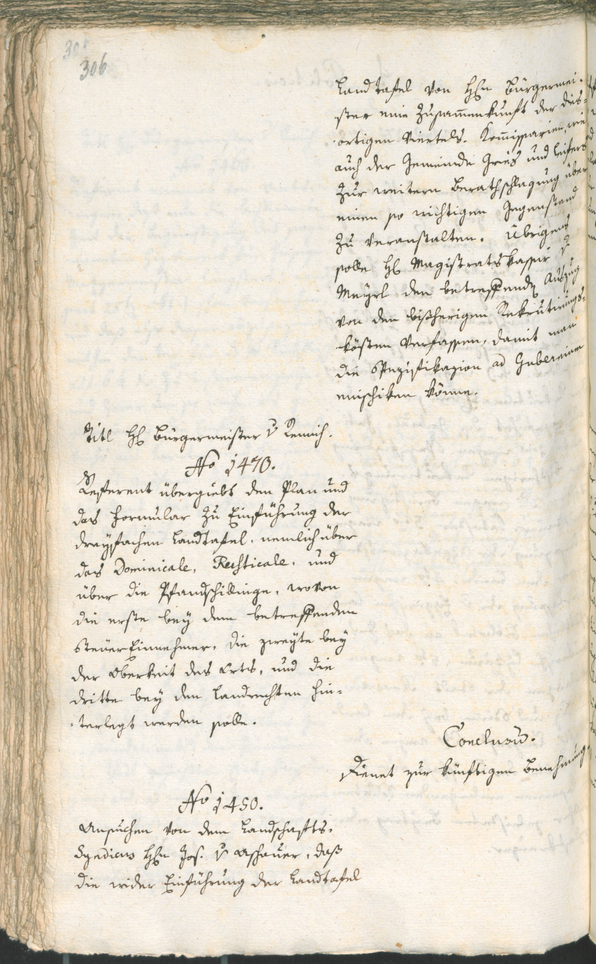 306
Landtafel von Hℓn Bürgermei-
ster eine Zusam̄enkunft der dies-
ortigen Viertels Kom̄issarien, wie
auch der Gemeinde Gries und Leifers
zur weitern Berathschlagung über
einen so wichtigen Gegenstand
zu veranstalten. Übrigens
solle Hℓ Magistratskassier v
Mayrl den betreffendℓ Auszug
von den bißherigen Rekrutirungs-
kösten verfassen, damit man
die Spezifikazion ad Gubernium
einschiken könne.
Titl Hℓ Bürgermeister v
No 1470.
Referent übergiebt den Plan und
das Formular zu Einführung der
dreyfachen Landtafel, nemlich über
das Dominicale, Rusticale, und
über die Pfandschillinge, wovon
die erste bey dem betreffenden
Steuer Einnehmer, die zweyte bey
der Oberkeit des Orts, und die
dritte bey den Landrechten hin-
terlegt werden solle.
Conclusū.
Dienet zur künftigen Benehmung
No 1450.
Ansuchen von dem Landschafts-
Syndicus Hℓn Jos. v Aschauer, daß
die wider Einführung der Landtafel